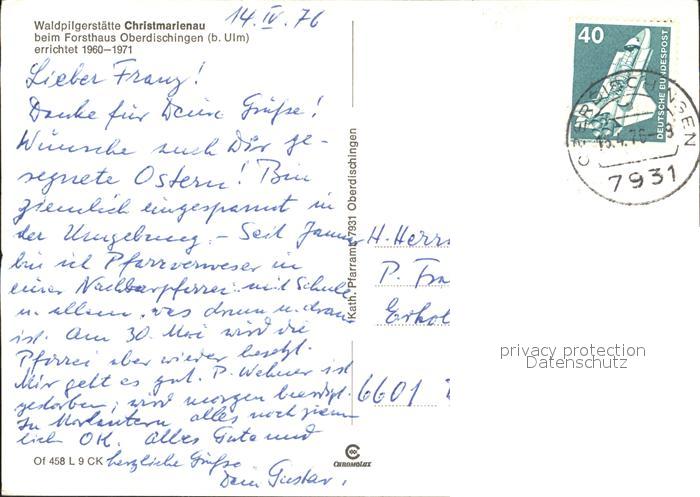 Waldpilgerstätte Christmarienau
beim Forsthaus Oberdischingen (b. Ulm)
errichtet 1960–1971
14. IV. 76
Lieber Franz!
Danke für Deine Grüße!
Wünsche auch Dir ge-
segnete Ostern! Bin
ziemlich eingespannt in
der Umgebung. – Seit Januar
bin ich Pfarrverweser in
einer Nachbarpfarrei mit Schule
u. allem, was drum u. dran
ist. Am 30. Mai wird die
Pfarrei aber wieder besetzt.
Mir geht es gut. P. Wehner ist
gestorben; wird morgen beerdigt.
In alles noch ziem-
lich OK. Alles Gute und
herzliche Grüße
Dein Gustav.
Of 458 L 9 CK
CHROMOLUX
Kath. Pfarramt 7931 Oberdischingen
40
DEUTSCHE BUNDESPOST
OBERDISCHINGEN
7931
H. Herrn
P. Fra
Erhol
6601
privacy protection
Datenschutz